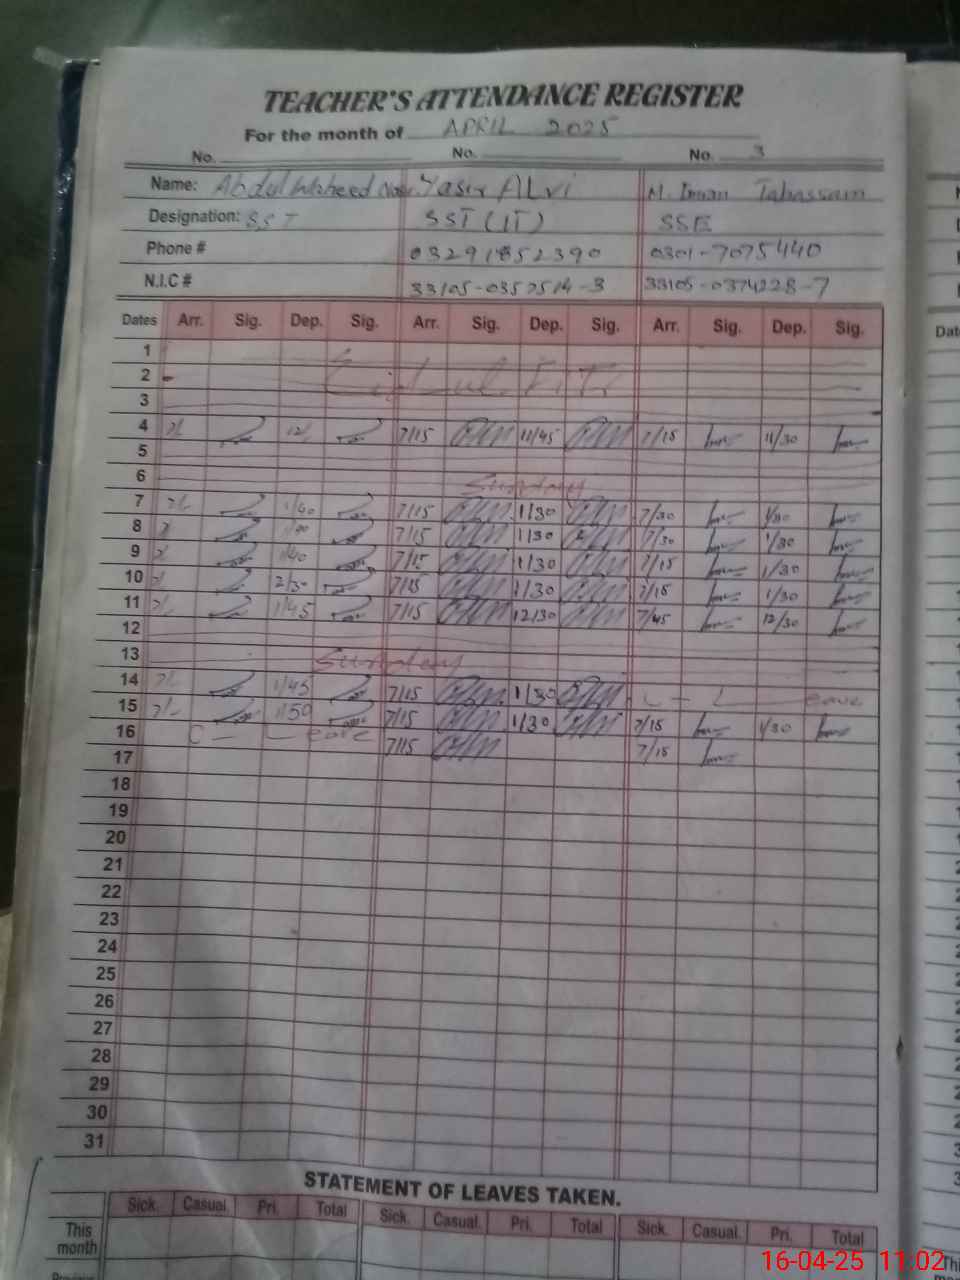 TEACHER'S ATTENDANCE REGISTER
For the month of APRIL 2025
No. No. No. 3
Name: Abdul Waheed Yasir ALvi M. Imran Tabassam
Designation: SST SST (IT) SSE
Phone # 03291852390 0301-7075440
N.I.C # 33105-0357514-3 33105-0374228-7
Dates Arr. Sig. Dep. Sig. Arr. Sig. Dep. Sig. Arr. Sig. Dep. Sig.
1
2 Eid ul Fitr
3
4 7/15 11/45 7/15 11/30
5
6 Sunday
7 1/40 7/15 1/30 7/30 1/30
8 7/15 1/30 7/30 1/30
9 1/40 7/15 1/30 7/15 1/30
10 2/30 7/15 1/30 7/15 1/30
11 1/45 7/15 12/30 7/45 12/30
12
13 Sunday
14 1/45 7/15 1/30 C - Leave
15 1/50 7/15 1/30 7/15 1/30
16 C - Leave 7/15 7/15
17
18
19
20
21
22
23
24
25
26
27
28
29
30
31
STATEMENT OF LEAVES TAKEN.
Sick. Casual. Pri. Total Sick. Casual. Pri. Total Sick. Casual. Pri. Total
This month
16-04-25 11:02